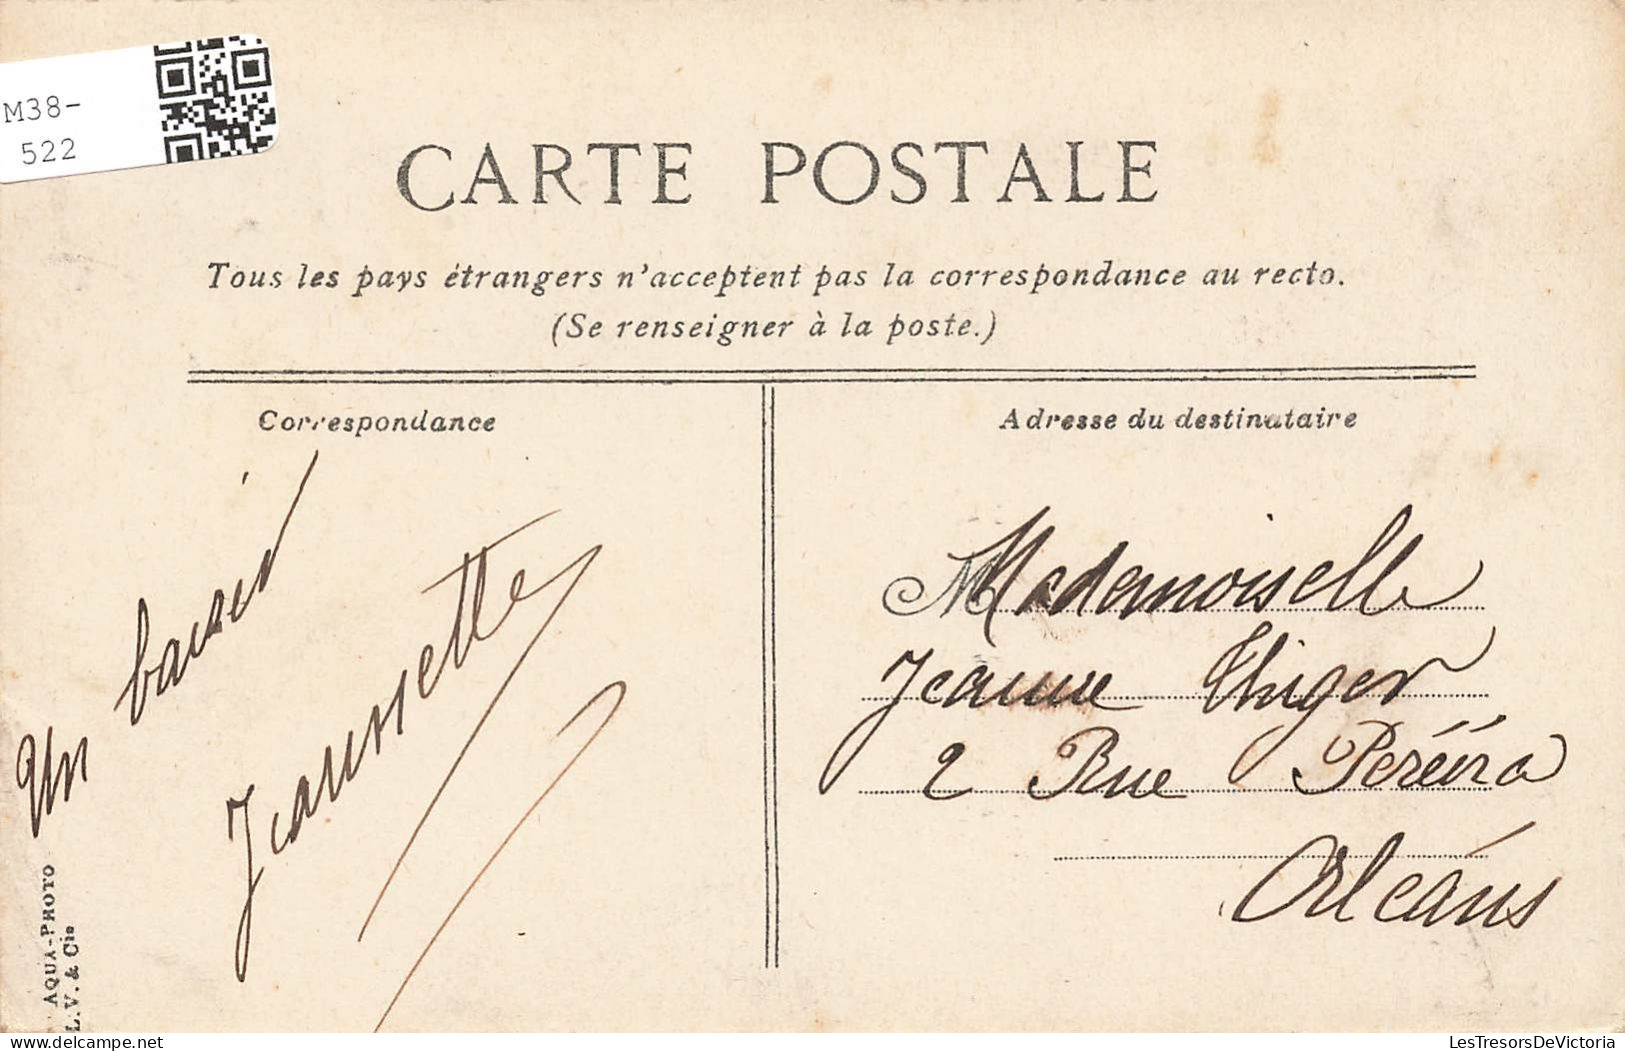 M38-
522
CARTE POSTALE
Tous les pays étrangers n'acceptent pas la correspondance au recto.
(Se renseigner à la poste.)
Correspondance
Adresse du destinataire
Un baiser
Jeannette
Mademoiselle
Jeanne Thiger
2 Rue Péreira
Orléans
AQUA-PHOTO
L.V. & Cie
LesTresorsDeVictoria